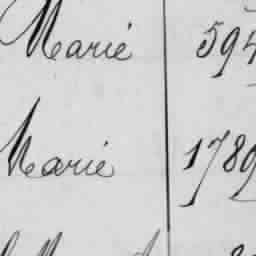 Marie 594
Marie 1789